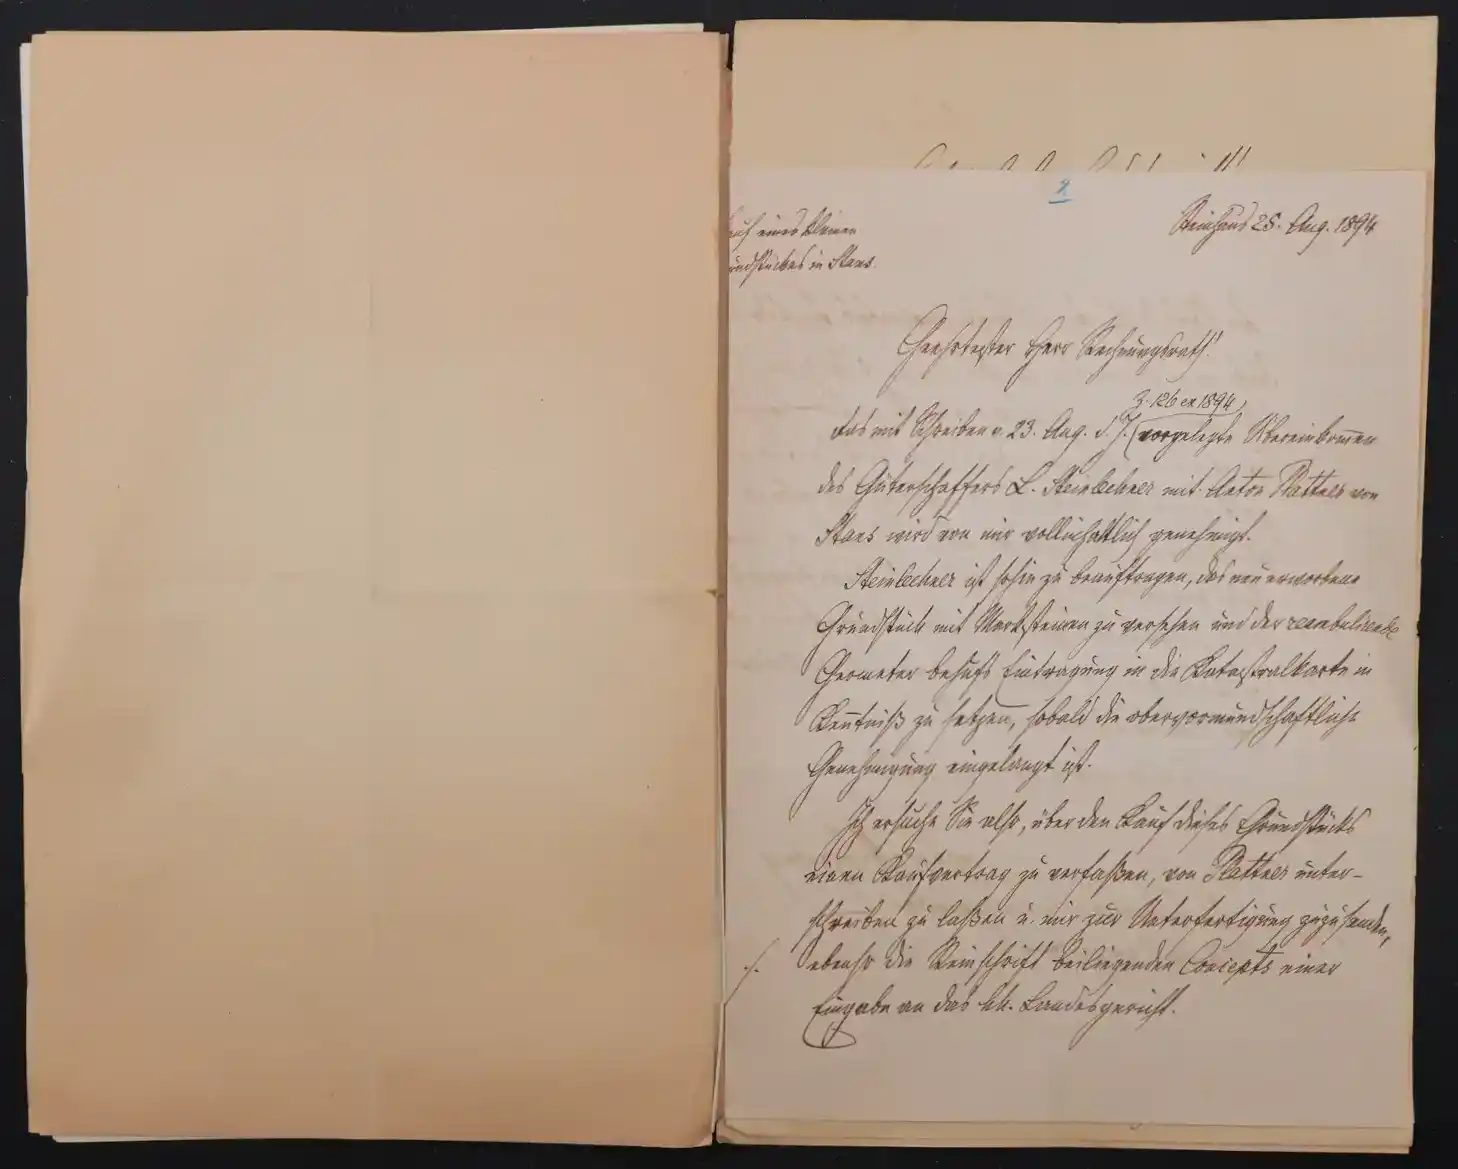 2
Kauf eines kleinen
Grundstückes in Stans.
25. Aug. 1894
Geehrtester Herr Rechnungsrath!
Z. 126 ex 1894
Das mit Schreiben v. 23. Aug. d. J. (vorgelegte Übereinkom̅en
des Güterschaffers L. Steinlechner mit Anton Plattner von
Stans wird von mir vollinhaltlich genehmigt.
Steinlechner ist sohin zu beauftragen, das neuerworbene
Grundstück mit Marksteinen zu versehen und der
Geometer behufs Eintragung in die Katastralkarte in
Ken̅tniß zu setzen, sobald die obervormundschaftliche
Genehmigung eingelangt ist.
Ich ersuche Sie also, über den Kauf dieses Grundstücks
einen Kaufvertrag zu verfaßen, von Plattner unter-
schreiben zu laßen u. mir zur Unterfertigung zuzusenden,
./. ebenso die Reinschrift beiliegenden Concepts einer
Eingabe an das kk. Landesgericht.